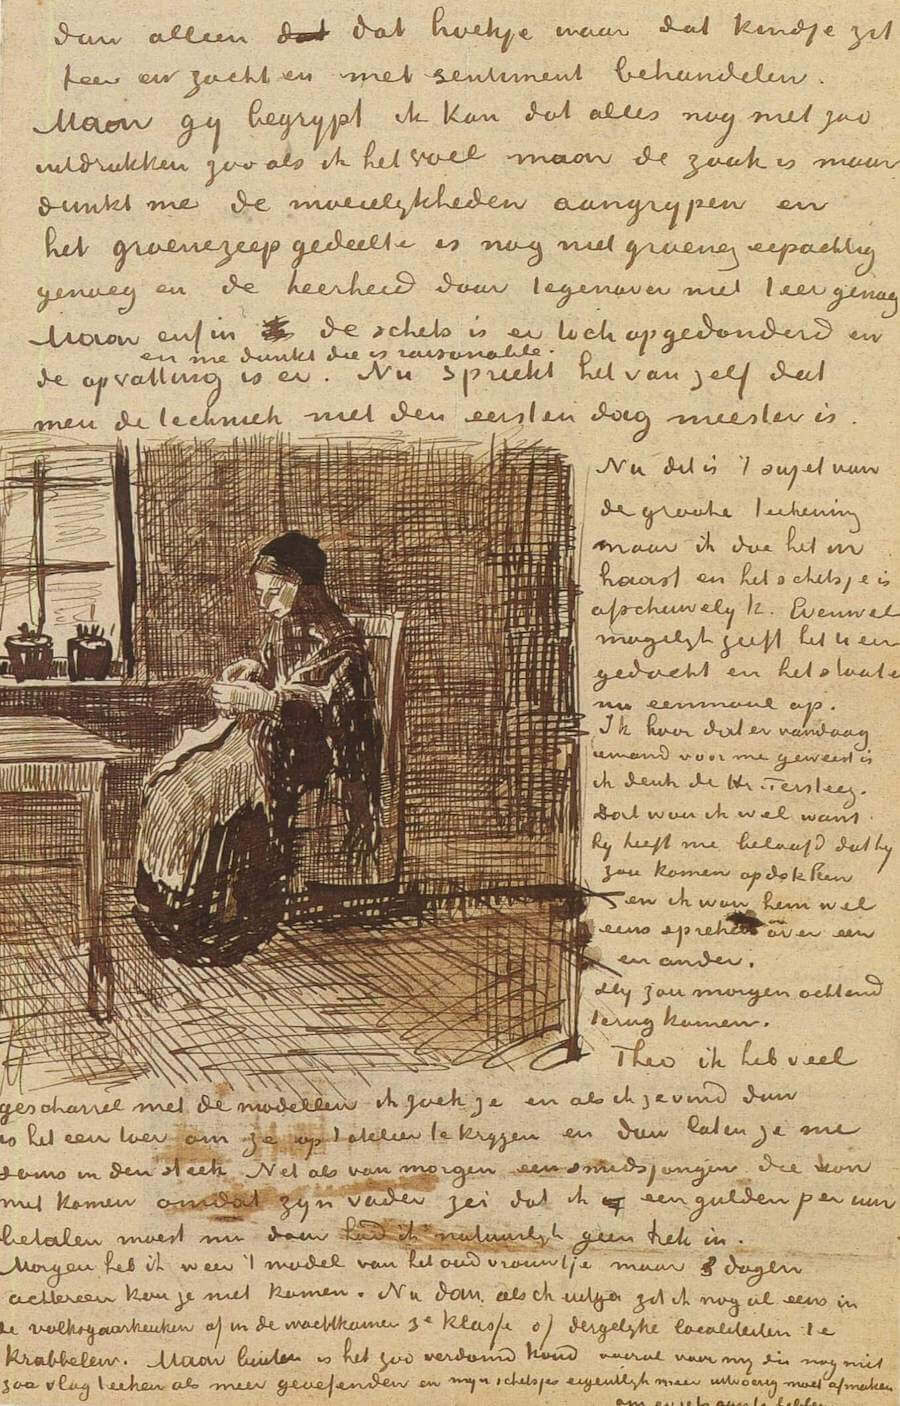 dan alleen dat dat hoekje waar dat kindje zit
teer en zacht en met sentiment behandelen.
Maar gy begrypt ik kan dat alles nog niet zoo
uitdrukken zooals ik het voel maar de zaak is maar
dunkt me de moeielykheden aangrypen en
het groenezeep gedeelte is nog niet groenezeepachtig
genoeg en de teerheid daar tegenover niet teer genoeg
Maar enfin de schets is er toch opgedonderd en
en me dunkt die is raisonable.
de opvatting is er. Nu spreekt het van zelf dat
men de techniek niet den eersten dag meester is.
Nu dit is 't sujet van
de groote teekening
maar ik doe het in
haast en het schetsje is
afschuwelyk. Evenwel
mogelyk geeft het U een
gedacht en het staat er
nu eenmaal op.
Ik hoor dat er vandaag
iemand voor me geweest is
ik denk de Hr. Tersteeg.
Dat wou ik wel want
hy heeft me beloofd dat hy
zou komen opdokken
en ik wou hem wel
eens spreken over een
en ander.
Hy zou morgen ochtend
terug komen.
Theo ik heb veel
gescharrel met de modellen ik zoek ze en als ik ze vind dan
is het een toer om ze op 't atelier te krygen en dan laten ze me
soms in den steek Net als van morgen een smidsjongen die kon
niet komen omdat zyn vader zei dat ik een gulden per uur
betalen moest nu daar had ik natuurlyk geen trek in.
Morgen heb ik weer 't model van het oud vrouwtje maar 3 dagen
achtereen kon ze niet komen. Nu dan als ik uitga zit ik nog al eens in
de volksgaarkeuken of in de wachtkamer 3e klasse of dergelyke localiteiten te
krabbelen. Maar buiten is het zoo verdomd koud vooral voor my die nog niet
zoo vlug teeken als meer geoefenden en myn schetsjes eigentlyk meer uitvoerig moet afmaken
om er iets aan te hebben